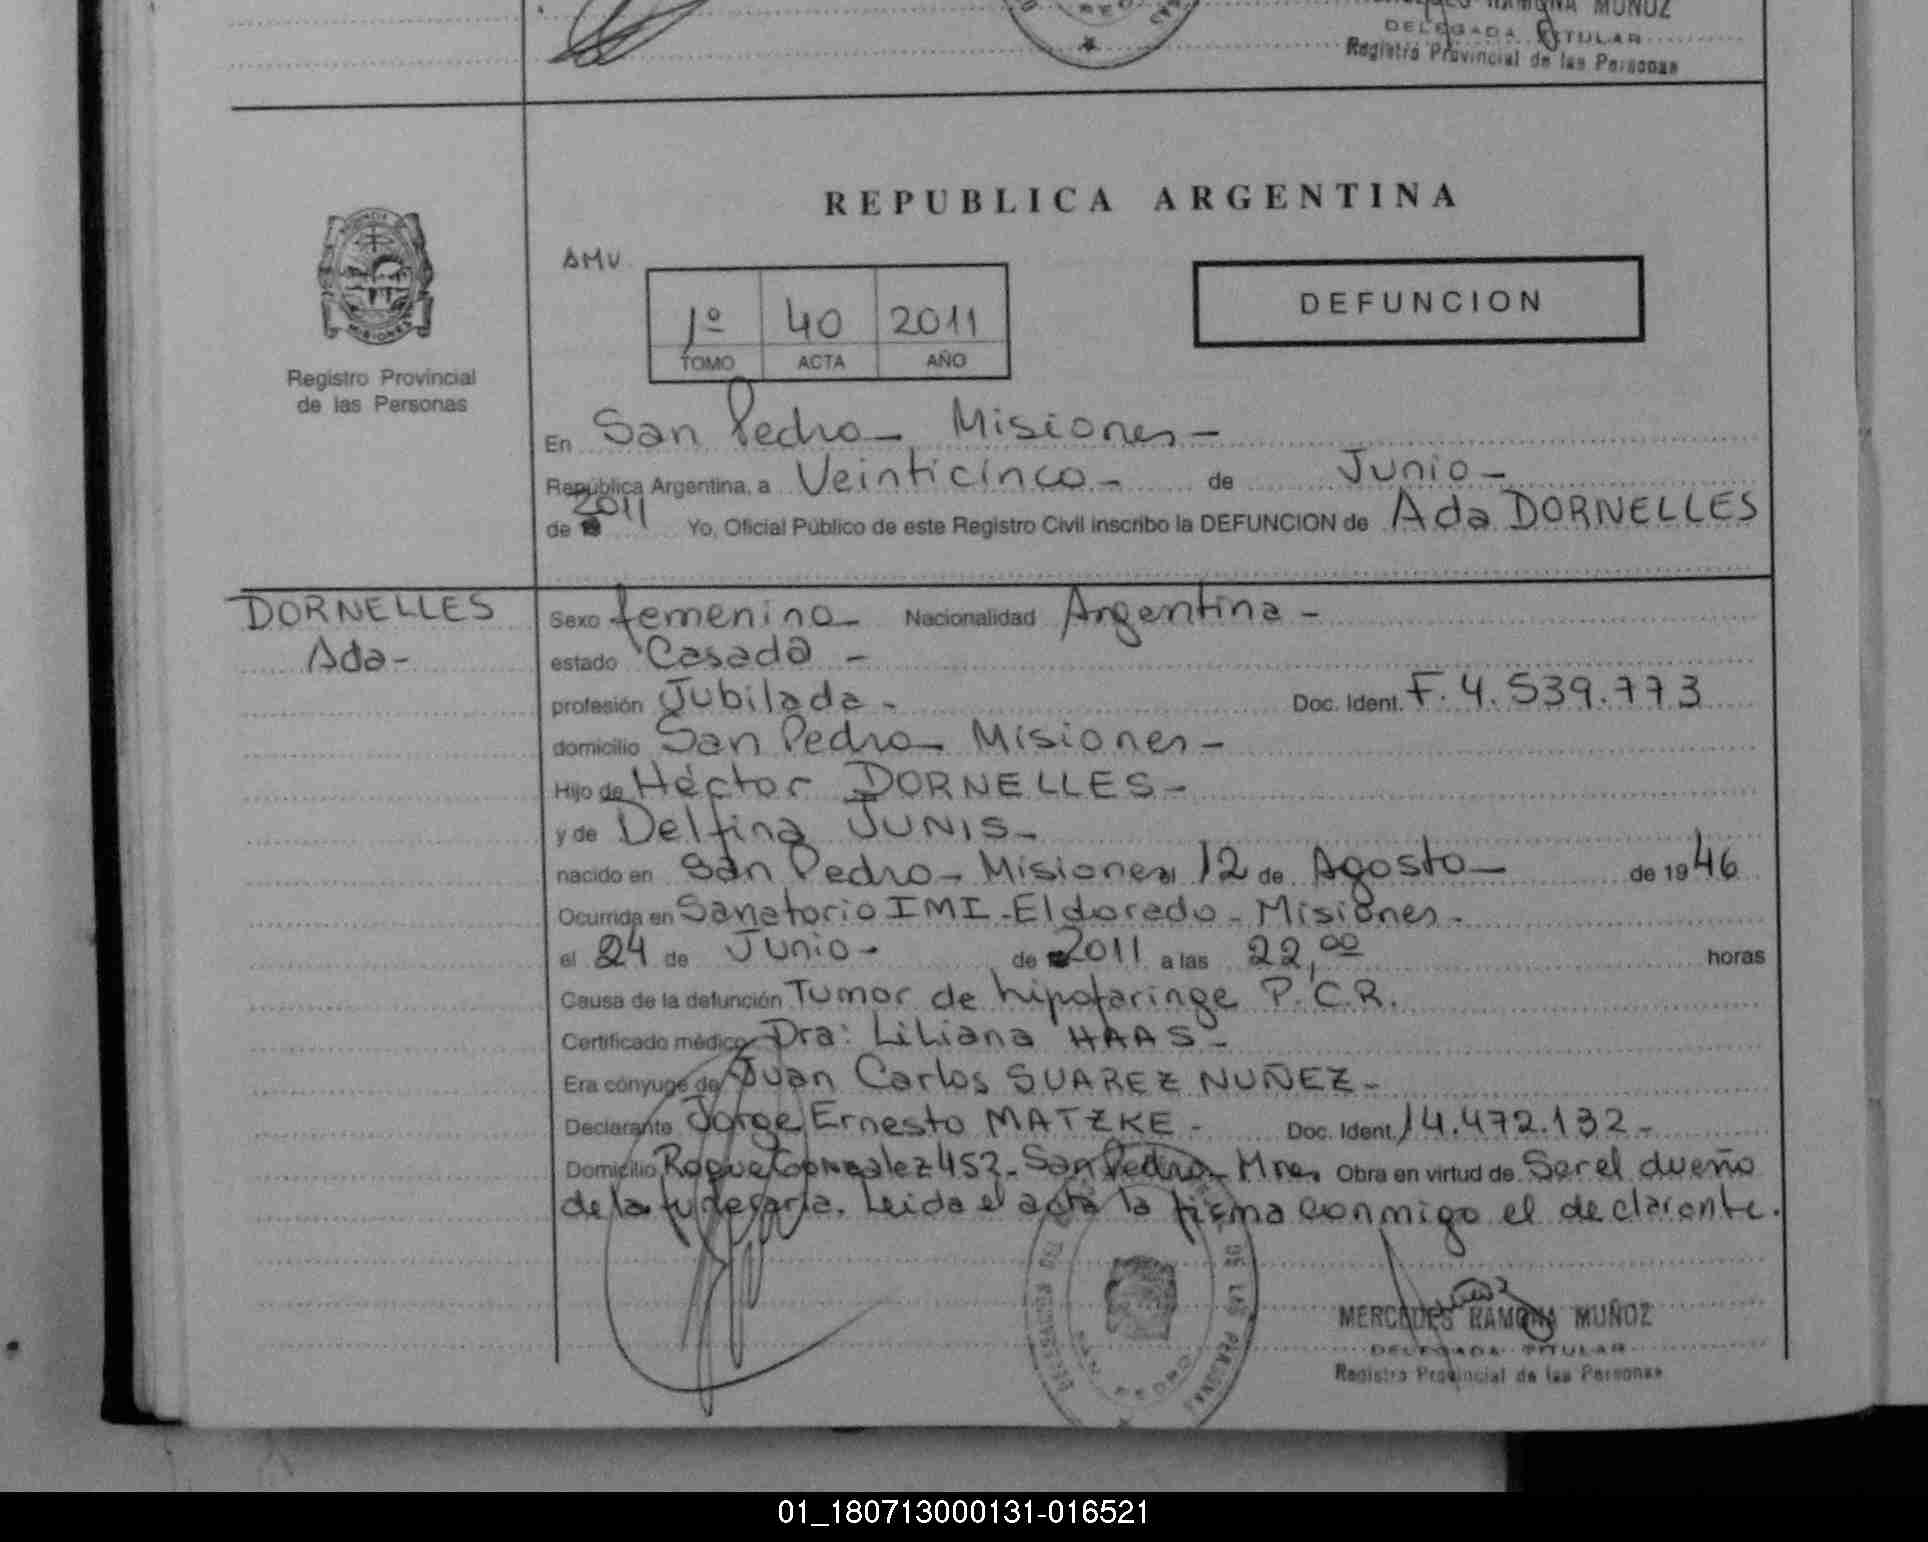 RAMONA MUÑOZ
DELEGADA TITULAR
Registro Provincial de las Personas
REPUBLICA ARGENTINA
AMV
1º 40 2011
TOMO ACTA AÑO
DEFUNCION
MISIONES
Registro Provincial
de las Personas
En San Pedro - Misiones -
República Argentina, a Veinticinco - de Junio -
de 2011 Yo, Oficial Público de este Registro Civil inscribo la DEFUNCION de Ada DORNELLES
DORNELLES
Ada -
Sexo femenino - Nacionalidad Argentina -
estado Casada -
profesión Jubilada - Doc. Ident. F. 4.539.773
domicilio San Pedro - Misiones -
Hijo de Héctor DORNELLES -
y de Delfina JUNIS -
nacido en San Pedro - Misiones el 12 de Agosto - de 1946
Ocurrida en Sanatorio IMI - Eldorado - Misiones -
el 24 de Junio - de 2011 a las 22,00 horas
Causa de la defunción Tumor de hipofaringe P.C.R.
Certificado médico Dra: Liliana HAAS -
Era cónyuge de Juan Carlos SUAREZ NUÑEZ -
Declarante Jorge Ernesto MATZKE - Doc. Ident. 14.472.132 -
Domicilio Roque Gonzalez 452 - San Pedro - Mnes. Obra en virtud de Ser el dueño
de la funeraria. Leida el acta la firma conmigo el declarante.
DE LAS PERSONAS
SAN PEDRO
MERCEDES RAMONA MUÑOZ
DELEGADA TITULAR
Registro Provincial de las Personas
01_180713000131-016521